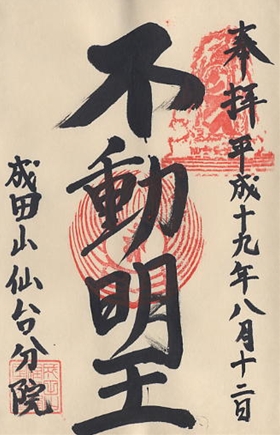 奉拝平成十九年八月十二日
不動明王
成田山仙台分院